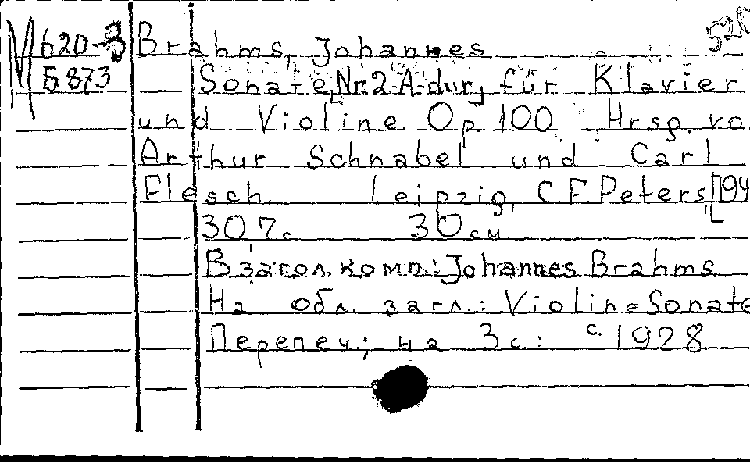 М 620-3 Brahms, Johannes
5873 Sonate, Nr.2 A-dur, für Klavier
und Violine. Op. 100 Hrsg. vo
Arthur Schnabel und Carl
Flesch. Leipzig, C F Peters [194
30,7 с. 30 см
В загол. комп.: Johannes Brahms
На обл. загл.: Violin=Sonate
Перепеч; на 3 с: c. 1928